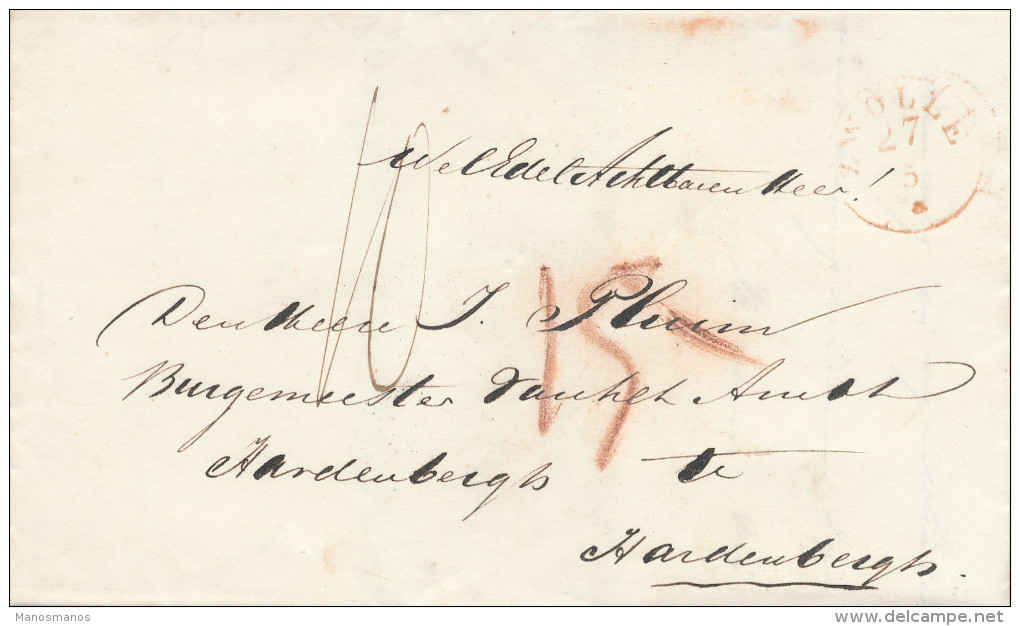 ZWOLLE
27
WelEdelAchtbaren Heer!
10
15
Den Heere J. Pluim
Burgemeester van het Ambt
Hardenbergh te
Hardenbergh.
Manosmanos
delcampe.net